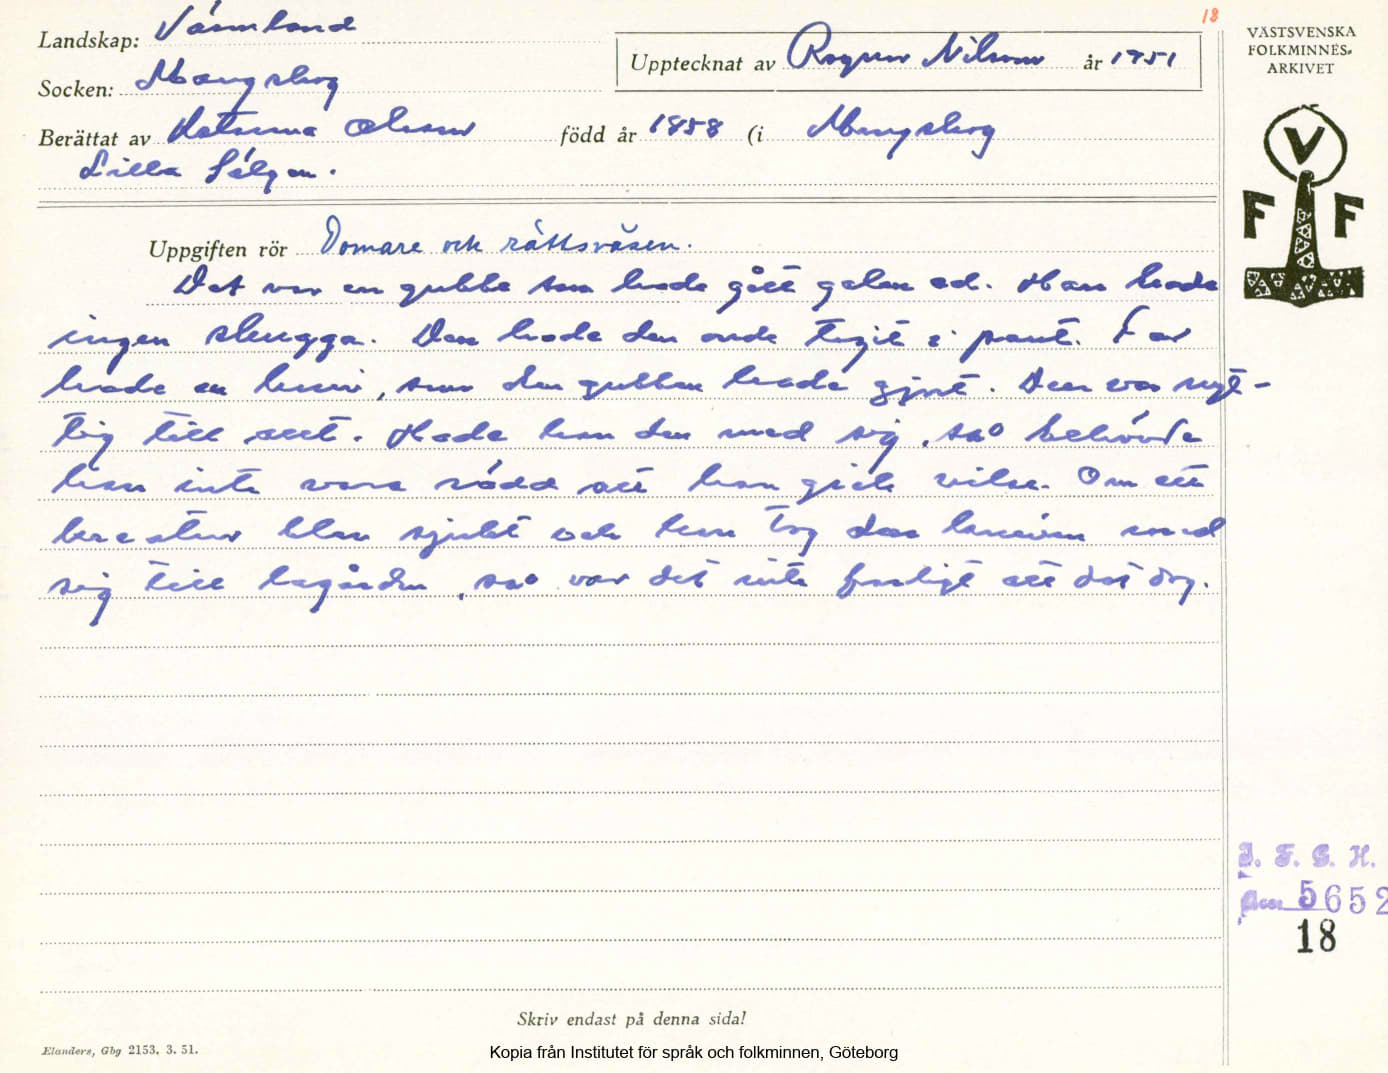 18
Landskap: Värmland
Socken: Mangskog
Upptecknat av Ragnar Nilsson år 1951
Berättat av Katrina Olsson född år 1858 (i Mangskog
Lilla Sälgen.
VÄSTSVENSKA
FOLKMINNES-
ARKIVET
V
F F
Uppgiften rör Domare och rättsväsen.
Det var en gubbe som hade gått galen ed. Han hade
ingen skugga. Den hade den onde tagit i pant. Far
hade en kniv, som den gubben hade gjort. Den var nyt-
tig till allt. Hade han den med sig, så behövde
han inte vara rädd att han gick vilse. Om ett
kreatur blev sjukt och han tog den kniven med
sig till lagården, så var det inte farligt att det dog.
I. F. G. H.
Acc 5652
18
Skriv endast på denna sida!
Elanders, Gbg 2153. 3. 51.
Kopia från Institutet för språk och folkminnen, Göteborg